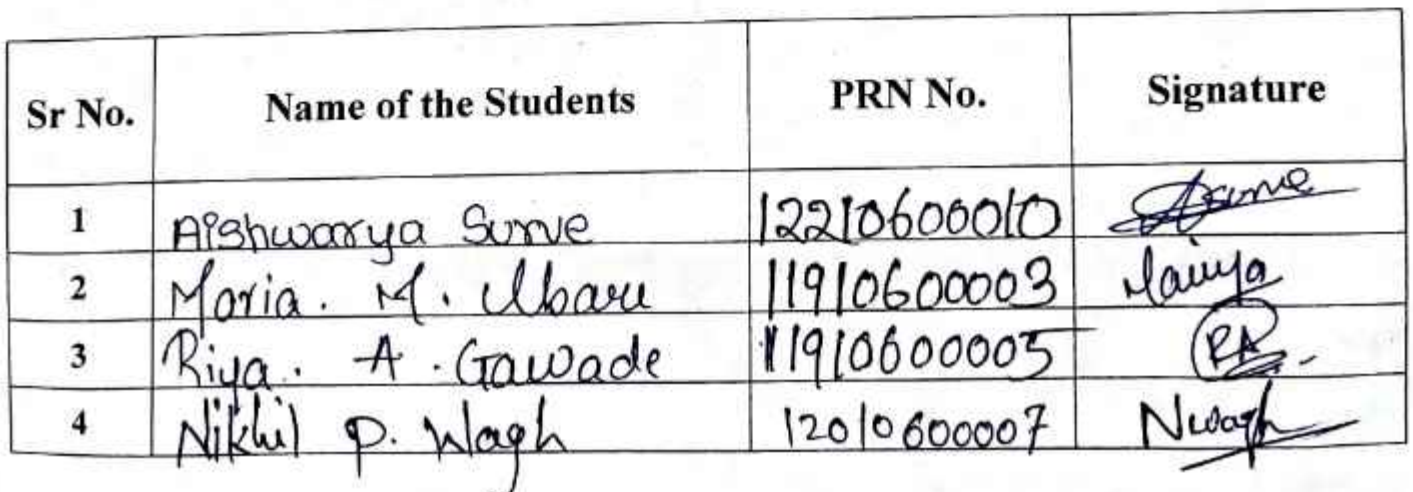 Sr No. Name of the Students PRN No. Signature
1 Aishwarya Surve 12210600010 Asurve
2 Maria. M. Ubare 11910600003
3 Riya. A. Gawade 11910600005 RA
4 Nikhil P. Wagh 12010600007 Nwagh